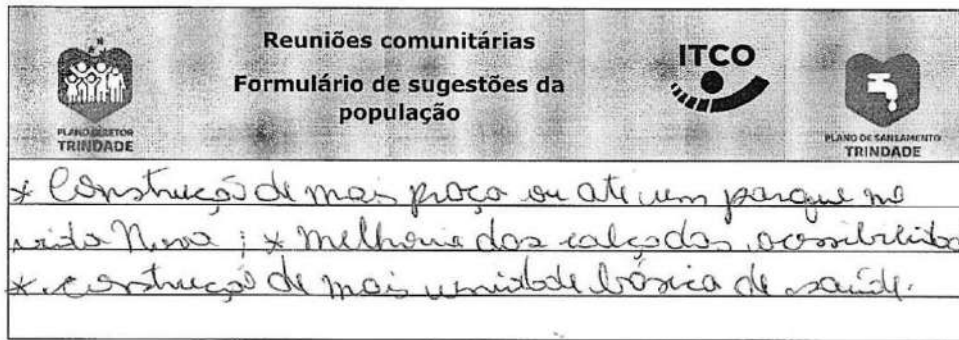 Reuniões comunitárias
Formulário de sugestões da
população
PLANO DIRETOR
TRINDADE
ITCO
PLANO DE SANEAMENTO
TRINDADE
* Construção de mais praça ou até um parque no
vida Nova ; * melhoria das calçadas, acessibilida
* construção de mais unidade básica de saúde.